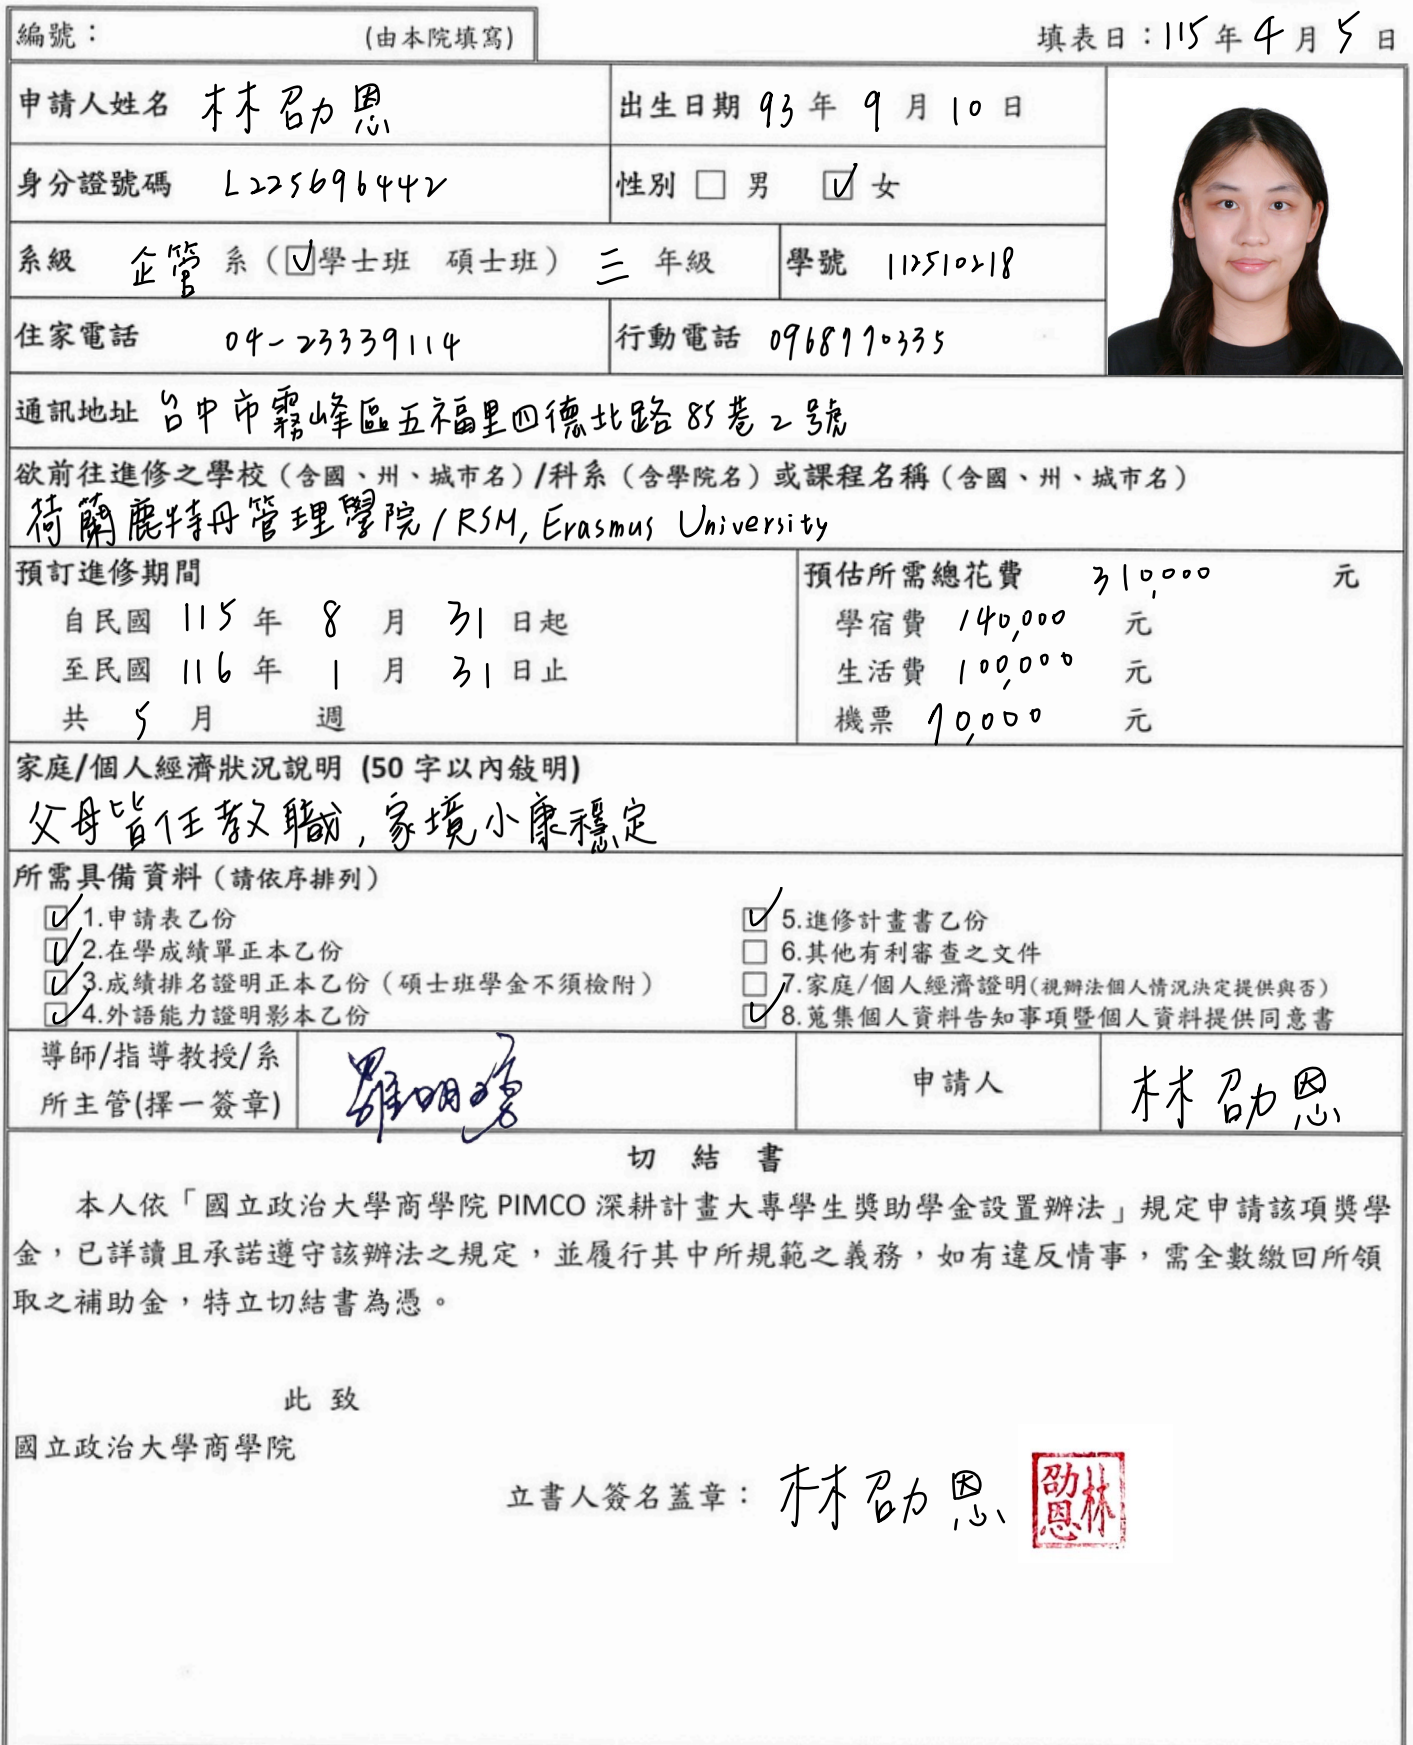 編號： (由本院填寫) 填表日：115年4月5日
申請人姓名 林劭恩 出生日期 93年9月10日
身分證號碼 L225696442 性別 □ 男 ☑ 女
系級 企管 系（☑學士班 碩士班）三 年級 學號 112510218
住家電話 04-23339114 行動電話 0968770335
通訊地址 台中市霧峰區五福里四德北路85巷2號
欲前往進修之學校（含國、州、城市名）/科系（含學院名）或課程名稱（含國、州、城市名）
荷蘭鹿特丹管理學院/RSM, Erasmus University
預訂進修期間 預估所需總花費 310,000 元
自民國 115 年 8 月 31 日起 學宿費 140,000 元
至民國 116 年 1 月 31 日止 生活費 100,000 元
共 5 月 週 機票 70,000 元
家庭/個人經濟狀況說明 (50字以內敍明)
父母皆任教職,家境小康穩定
所需具備資料（請依序排列）
☑1.申請表乙份 ☑5.進修計畫書乙份
☑2.在學成績單正本乙份 □6.其他有利審查之文件
☑3.成績排名證明正本乙份（碩士班學金不須檢附） □7.家庭/個人經濟證明(視辦法個人情況決定提供與否)
☑4.外語能力證明影本乙份 ☑8.蒐集個人資料告知事項暨個人資料提供同意書
導師/指導教授/系
所主管(擇一簽章) 申請人 林劭恩
切 結 書
本人依「國立政治大學商學院 PIMCO 深耕計畫大專學生獎助學金設置辦法」規定申請該項獎學
金，已詳讀且承諾遵守該辦法之規定，並履行其中所規範之義務，如有違反情事，需全數繳回所領
取之補助金，特立切結書為憑。
此 致
國立政治大學商學院
立書人簽名蓋章： 林劭恩 林劭恩